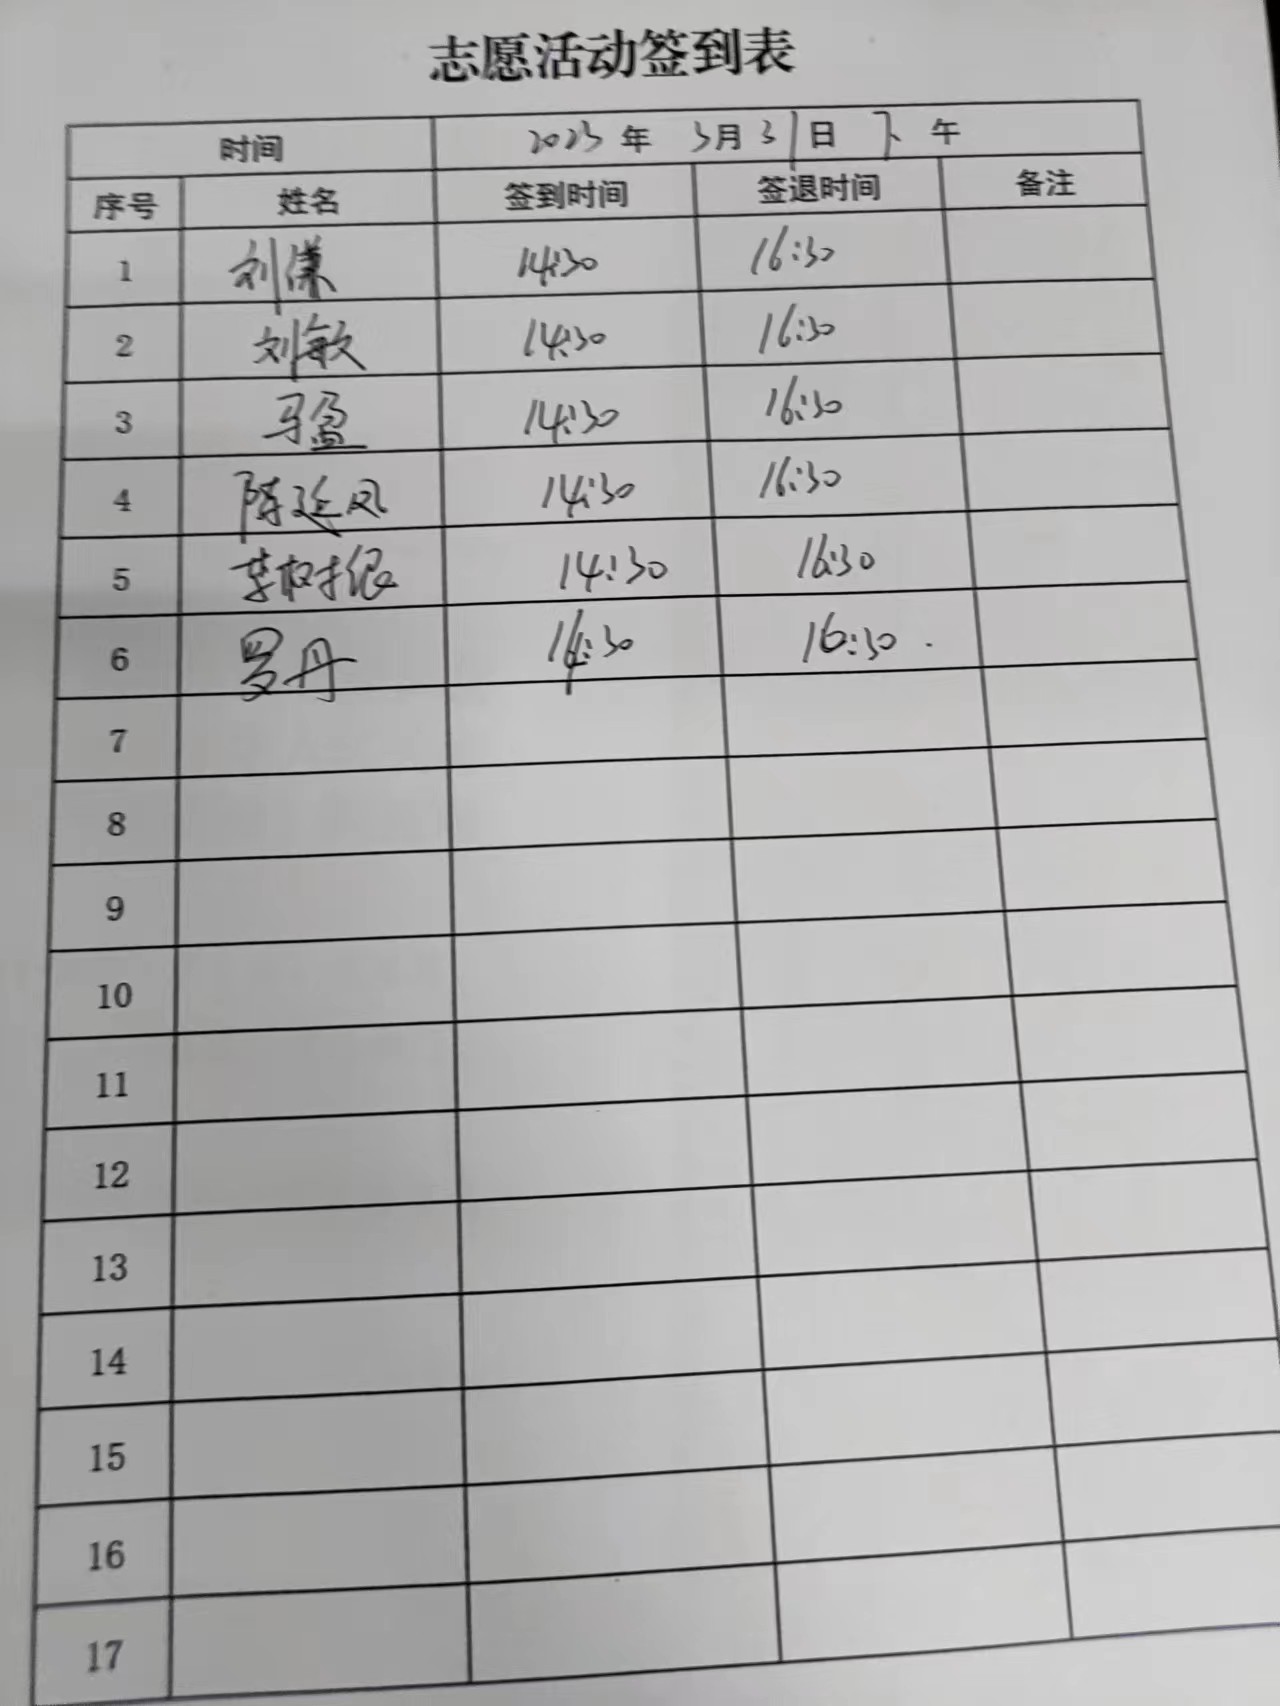 志愿活动签到表
时间 2023 年 3月31日 下 午
序号 姓名 签到时间 签退时间 备注
1 刘谦 14:30 16:30
2 刘敏 14:30 16:30
3 马盈 14:30 16:30
4 陈廷风 14:30 16:30
5 14:30 16:30
6 罗丹 14:30 16:30
7
8
9
10
11
12
13
14
15
16
17